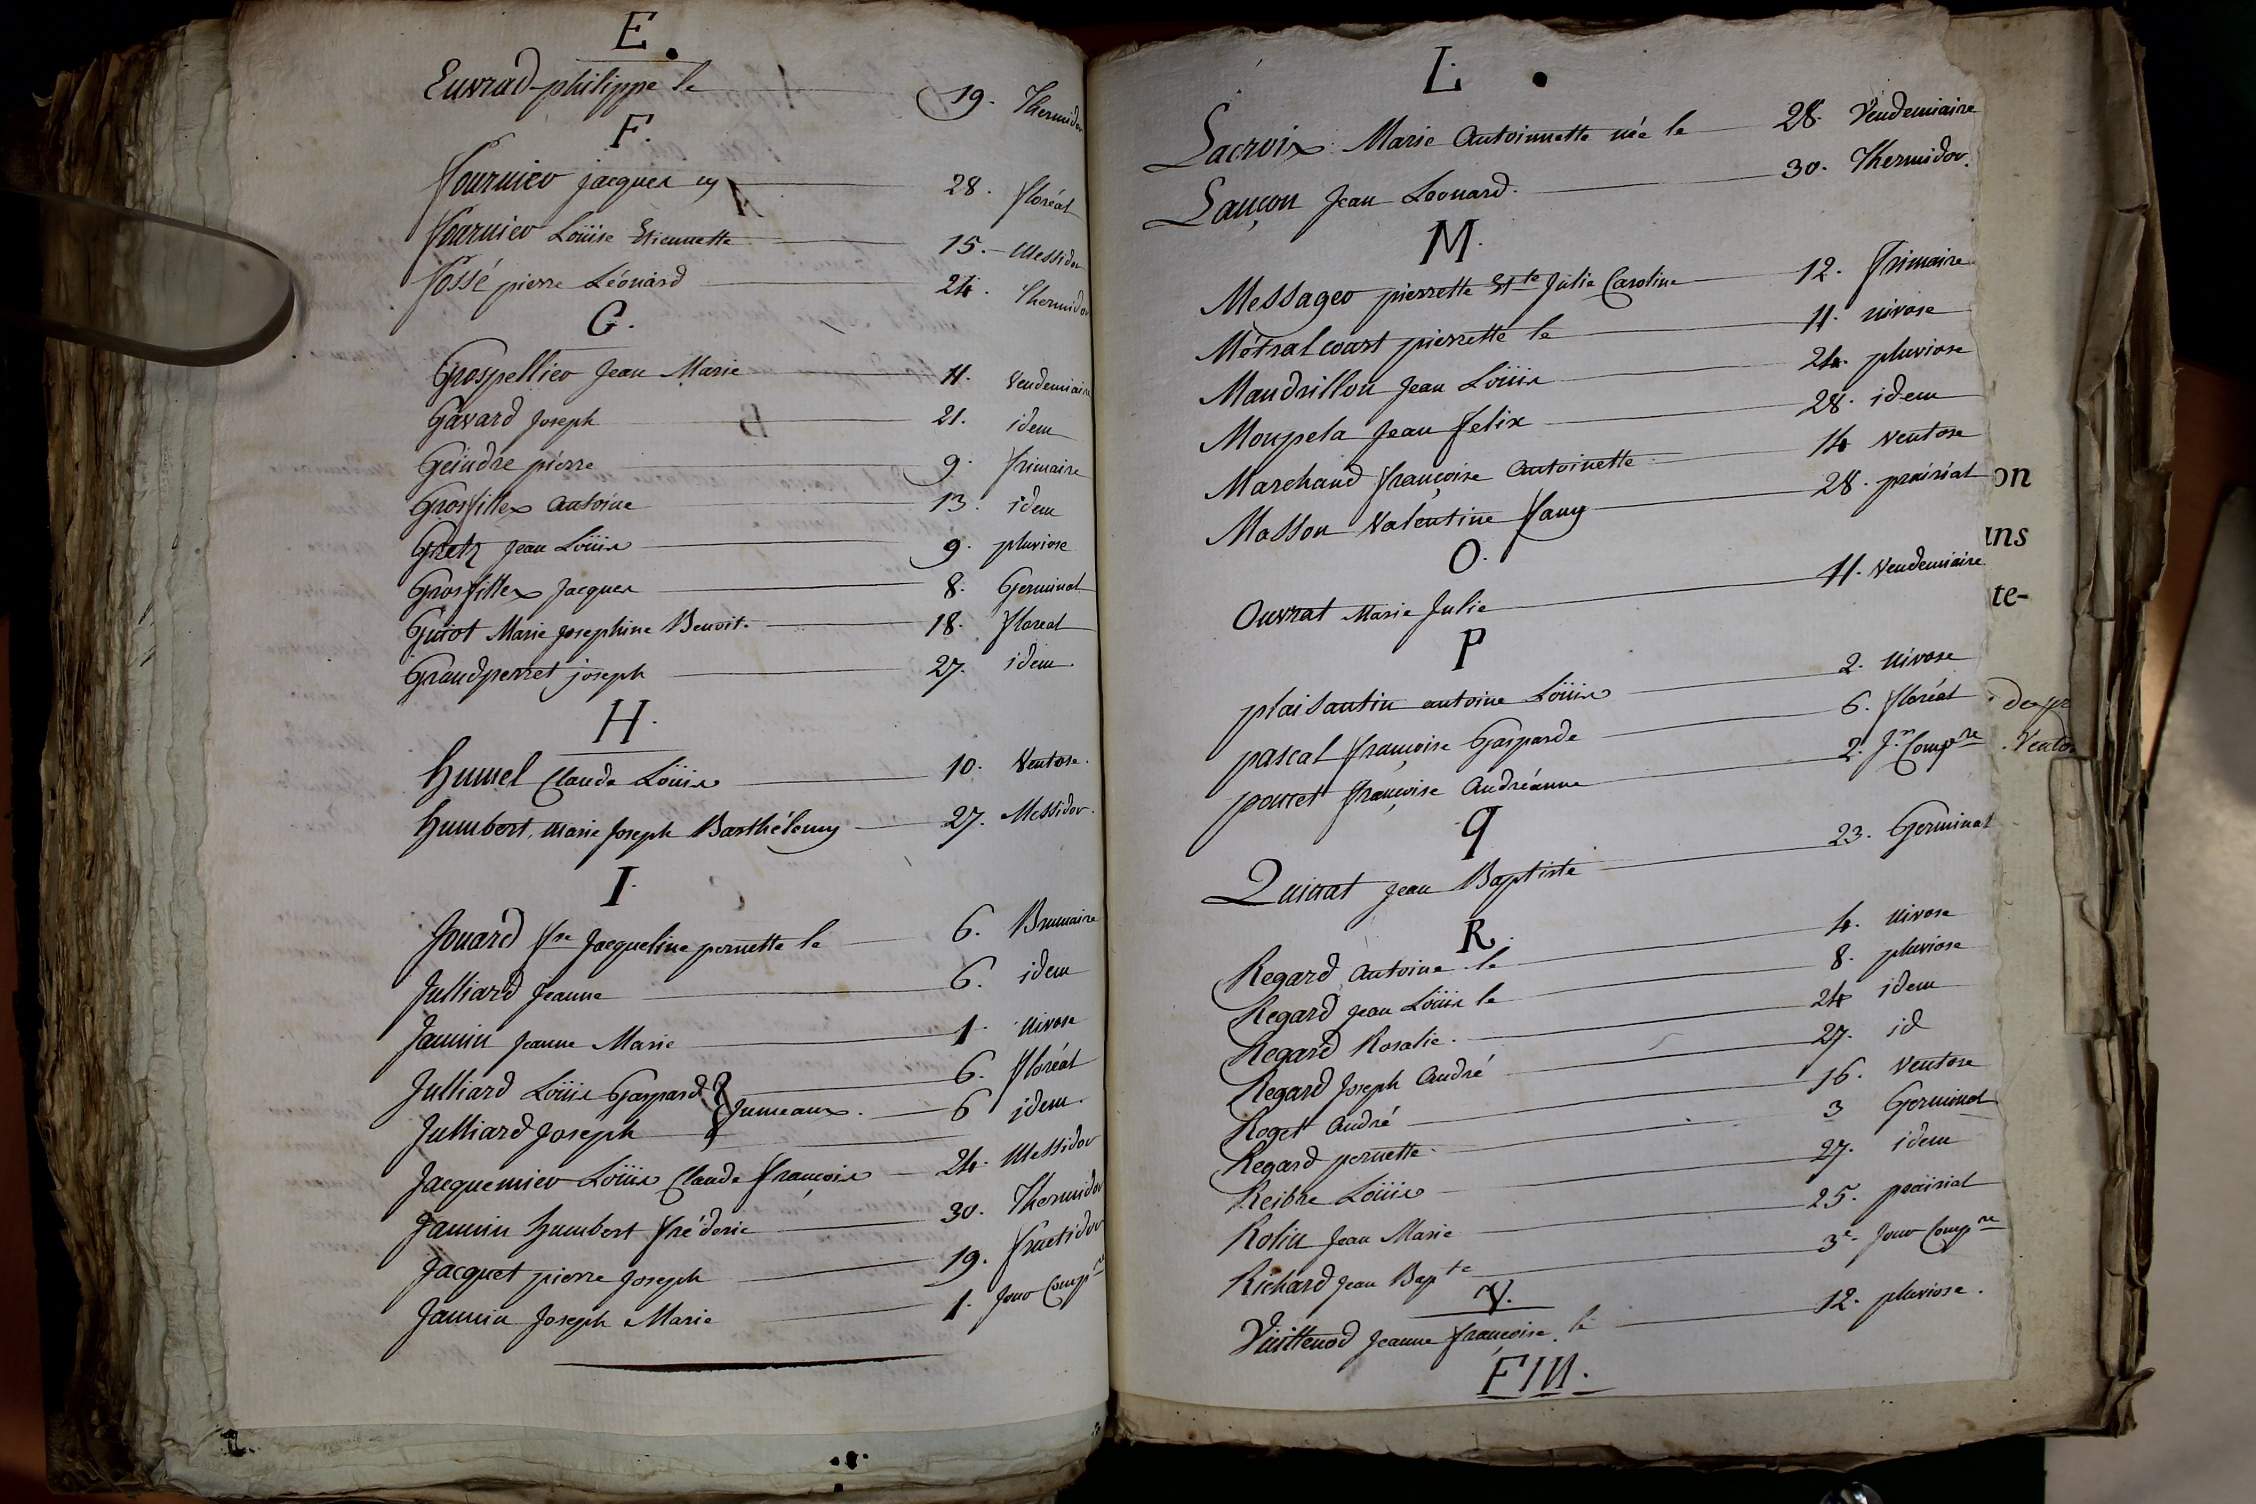 E.
Euvrad philippe le 19. Thermidor
F.
fournier jacques 28. floréal
fournier Loüise Etiennette 15. Messidor
fossé pierre Léonard 24. Thermidor
G.
Grospellier Jean Marie 11. Vendemiaire
Gavard Joseph 21. idem
Geindre pierre 9. frimaire
Grosfillex Antoine 13. idem
Jean Loüis 9. pluviose
Grosfillex Jacques 8. Germinal
Guiot Marie Josephine Benoit. 18. floreal
Grandperret joseph 27. idem.
H.
humel Claude Loüis 10. Ventose.
humbert, marie Joseph Barthélemy 27. Messidor.
I.
Jouard fse Jacqueline pernette le 6. Brumaire
Julliard Jeanne 6. idem
Jannin Jeanne Marie 1. nivose
Julliard Loüis Gaspard 6. floréal
Jumeaux.
Julliard Joseph 6 idem.
Jacquemier Loüis Claude françois 24. Messidor
Jannin humbert fréderic 30. Thermidor
Jacquet pierre Joseph 19. fructidor
Jannin Joseph Marie 1. Jour Compre
L.
Lacroix Marie Antoinnette née le 28. Vendemiaire
Lançon Jean Leonard. 30. Thermidor.
M.
Messager pierrette Ette Julie Caroline 12. frimaire
Métral court pierrette le 11. nivose
Mandrillon Jean Loüis 24. pluviose
Monpela Jean felix 28. idem
Marchand françoise Antoinette 14 ventose
Masson Valentine fany 28. prairial
O.
Ouvrat Marie Julie 11. vendemiaire
P
plaisantin antoine Loüis 2. nivose
pascal françoise Gasparde 6. floréal
poncet françoise Andréanne 2. Jr. Compre
q
Quinat Jean Baptiste 23. Germinal
R.
Regard Antoine le 4. nivose
Regard Jean Loüis le 8. pluviose
Regard Rosalie. 24 idem
Regard Joseph André 27. id
Roget André 16. ventose
Regard pernette. 3 Germinal
Reibre Loüis 27. idem
Rolin Jean Marie 25. prairial
Richard Jean Bapte 3e. Jour Compre
V.
Vuittenod Jeanne françoise. le 12. pluviose.
FIN.
on
ans
te-